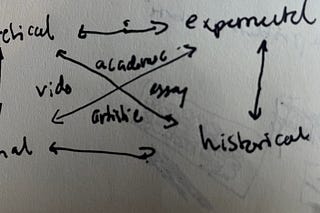 etical expermental
academic
vido essay
artistic
nal historical